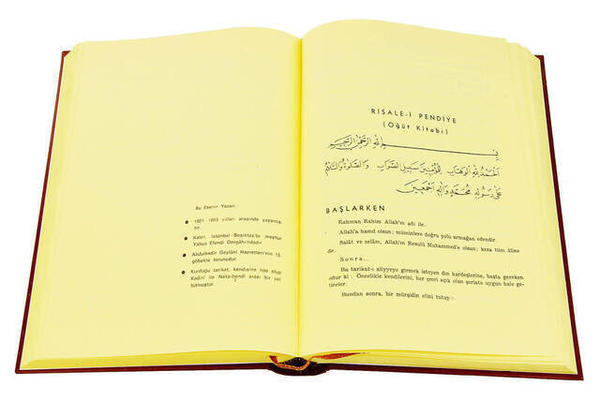 Bu Eserin Yazarı
yılları arasında yaşamış-
tır.
Kabri, İstanbul Beşiktaş'ta meşhur
Yahya Efendi Dergâhındadır.
Abdulkadir Geylânî Hazretlerinin
göbekte torunudur.
Kurduğu tarikat, kendisine has olup
Kadirî ile Nakş-bendî arası bir yol
tutmuştur.
RİSALE-İ PENDİYE
(Öğüt Kitabı)
بِسْمِ اللهِ الرَّحْمٰنِ الرَّحِيمِ
اَلْحَمْدُ لِلّٰهِ الْوَهَّابِ لِلْمُؤْمِنِينَ سَبِيلَ الصَّوَابِ وَالصَّلٰوةُ وَالسَّلَامُ
عَلٰى رَسُولِهِ مُحَمَّدٍ وَاٰلِهِ اَجْمَعِينَ
BAŞLARKEN
Rahman Rahim Allah'ın adı ile.
Allah'a hamd olsun; müminlere doğru yolu armağan edendir.
Salât ve selâm, Allah'ın Resulü Muhammed'e olsun; keza tüm âline
de.
Sonra..
Bu tarikat-ı aliyyeye girmek isteyen din kardeşlerine, başta gereken
odur ki: Öncelikle kendilerini, her çeşit açık olan şartlara uygun hale ge-
tireler.
Bundan sonra, bir mürşidin elini tutup: